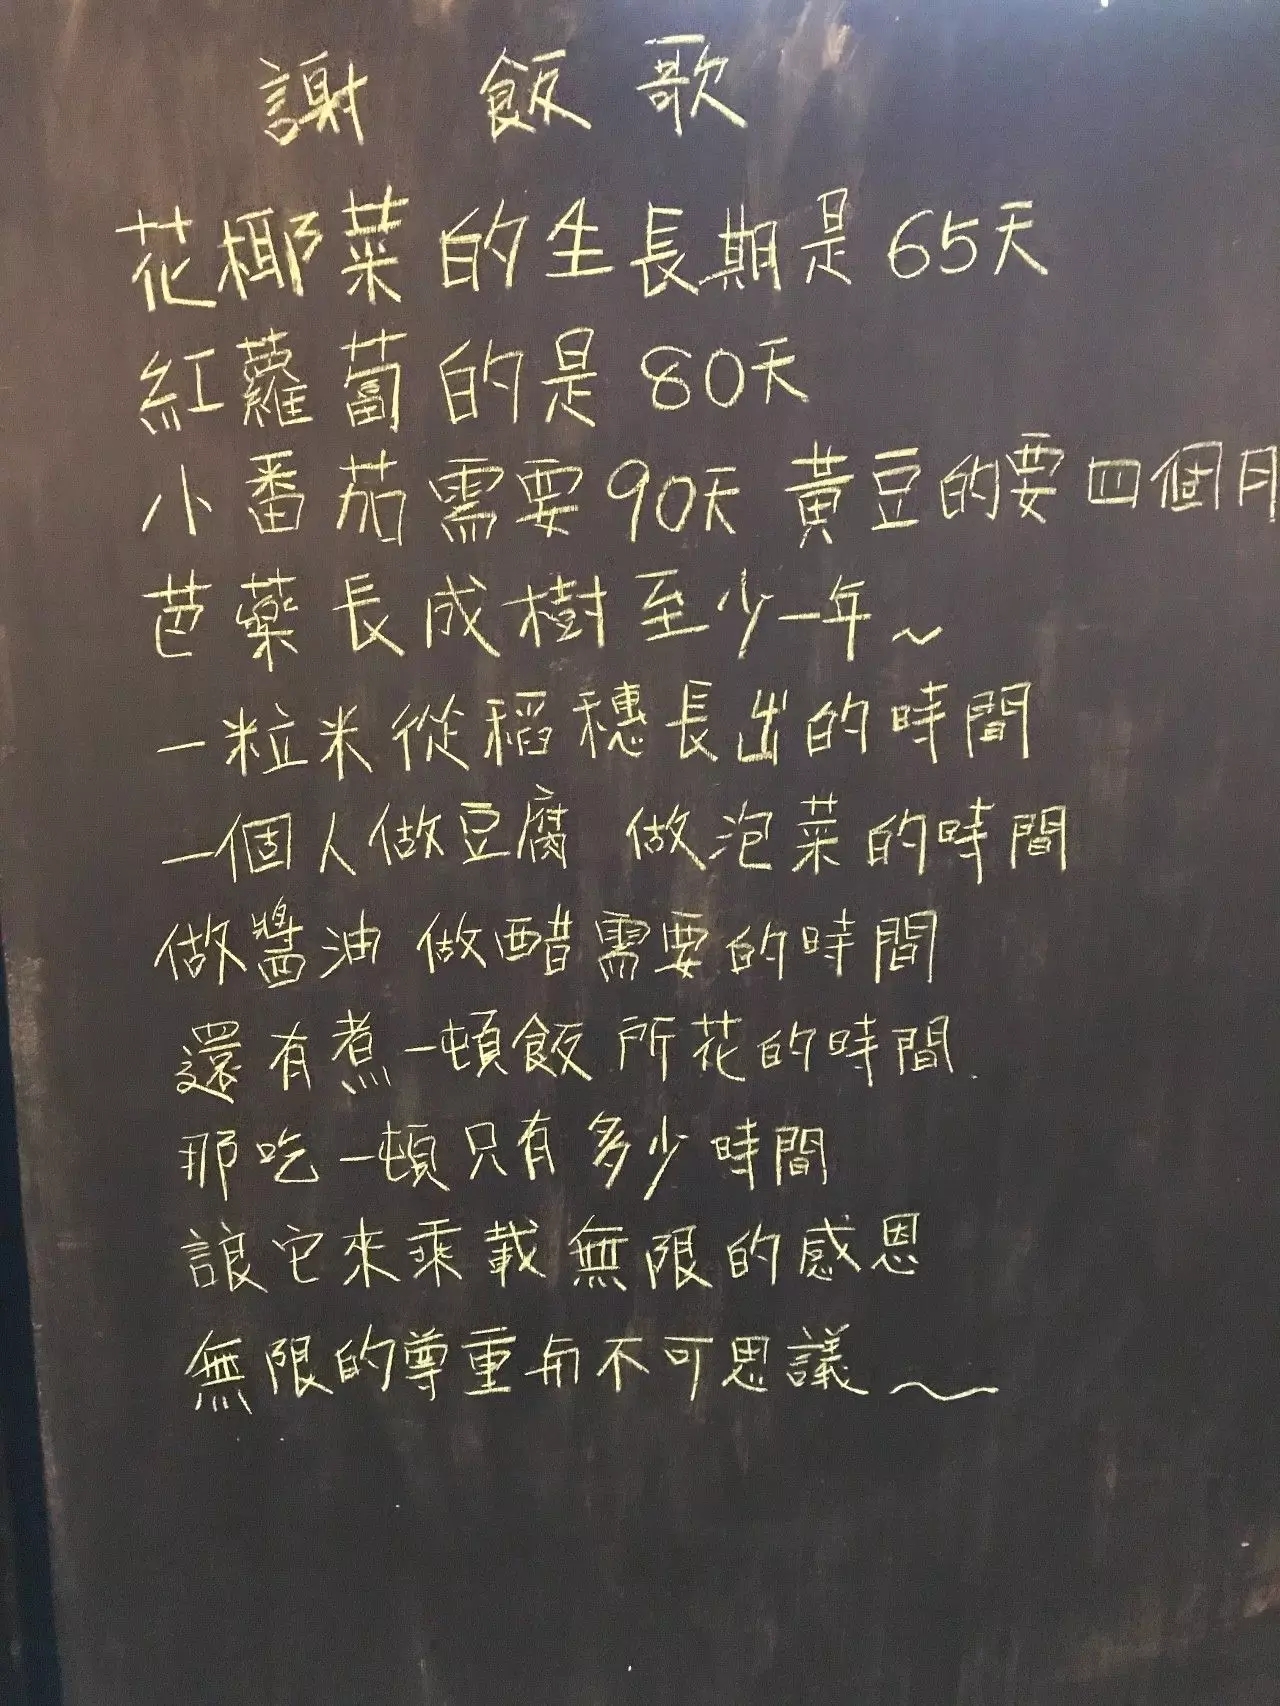 謝 飯 歌
花椰菜的生長期是65天
紅蘿蔔的是80天
小番茄需要90天 黃豆的要四個月
芭藥長成樹至少一年~
一粒米從稻穗長出的時間
一個人做豆腐 做泡菜的時間
做醬油 做醋需要的時間
還有煮一頓飯 所花的時間.
那吃一頓只有多少時間
誏它來乘載無限的感恩
無限的尊重與不可思議~